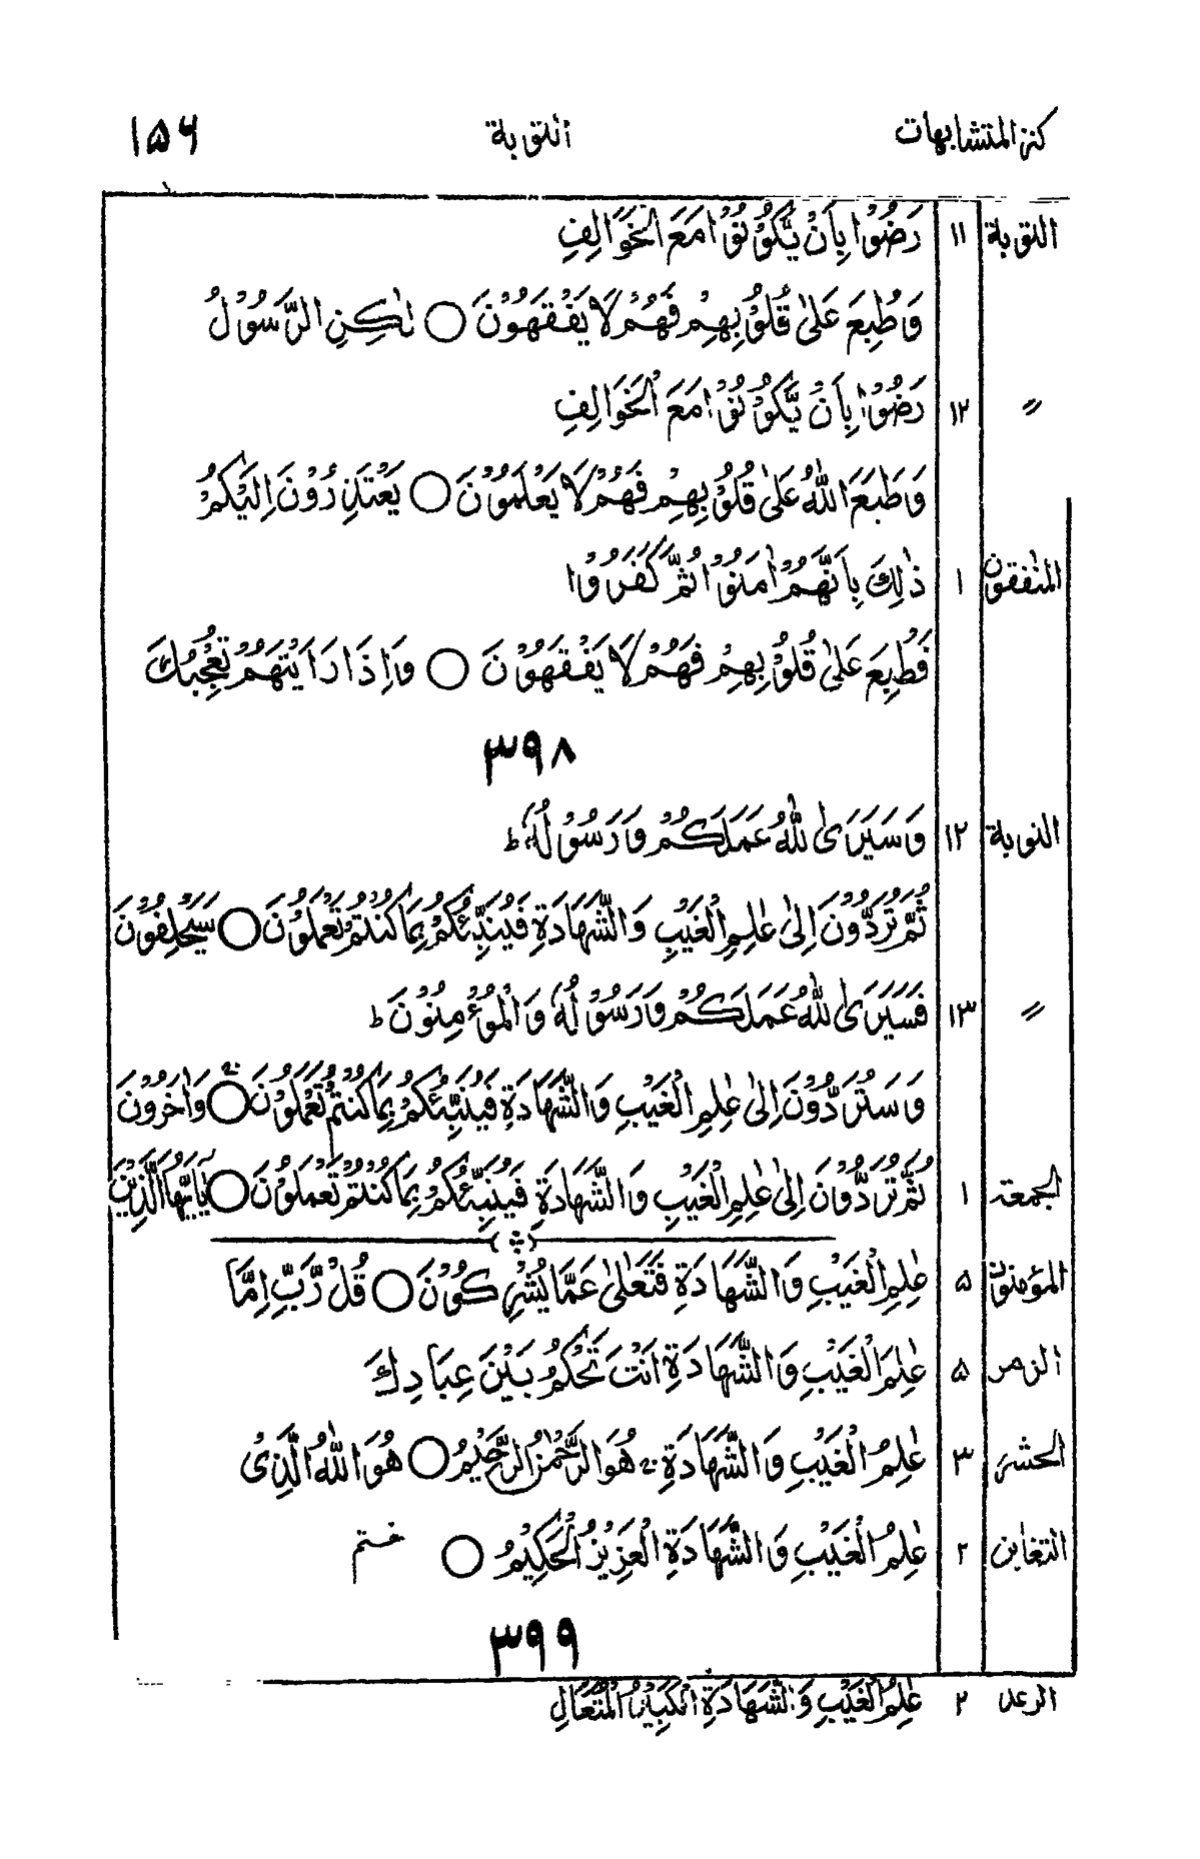 كنز المتشابهات التوبة ۱۵۶
التوبة ۱۱ رَضُوْا بِاَنْ يَّكُوْنُوْا مَعَ الْخَوَالِفِ
وَطُبِعَ عَلٰى قُلُوْبِهِمْ فَهُمْ لَا يَفْقَهُوْنَ ○ لٰكِنِ الرَّسُوْلُ
〃 ۱۲ رَضُوْا بِاَنْ يَّكُوْنُوْا مَعَ الْخَوَالِفِ
وَطَبَعَ اللّٰهُ عَلٰى قُلُوْبِهِمْ فَهُمْ لَا يَعْلَمُوْنَ ○ يَعْتَذِرُوْنَ اِلَيْكُمْ
المنٰفقون ۱ ذٰلِكَ بِاَنَّهُمْ اٰمَنُوْا ثُمَّ كَفَرُوْا
فَطُبِعَ عَلٰى قُلُوْبِهِمْ فَهُمْ لَا يَفْقَهُوْنَ ○ وَاِذَا رَاَيْتَهُمْ تُعْجِبُكَ
۳۹۸
التوبة ۱۲ وَسَيَرَى اللّٰهُ عَمَلَكُمْ وَرَسُوْلُهٗ ط
ثُمَّ تُرَدُّوْنَ اِلٰى عٰلِمِ الْغَيْبِ وَالشَّهَادَةِ فَيُنَبِّئُكُمْ بِمَا كُنْتُمْ تَعْمَلُوْنَ ○ سَيَحْلِفُوْنَ
〃 ۱۳ فَسَيَرَى اللّٰهُ عَمَلَكُمْ وَرَسُوْلُهٗ وَالْمُؤْمِنُوْنَ ط
وَسَتُرَدُّوْنَ اِلٰى عٰلِمِ الْغَيْبِ وَالشَّهَادَةِ فَيُنَبِّئُكُمْ بِمَا كُنْتُمْ تَعْمَلُوْنَ ○ وَاٰخَرُوْنَ
الجمعة ۱ ثُمَّ تُرَدُّوْنَ اِلٰى عٰلِمِ الْغَيْبِ وَالشَّهَادَةِ فَيُنَبِّئُكُمْ بِمَا كُنْتُمْ تَعْمَلُوْنَ ○ يٰاَيُّهَا الَّذِيْنَ
المؤمنون ۵ عٰلِمِ الْغَيْبِ وَالشَّهَادَةِ فَتَعٰلٰى عَمَّا يُشْرِكُوْنَ ○ قُلْ رَّبِّ اِمَّا
الزمر ۵ عٰلِمَ الْغَيْبِ وَالشَّهَادَةِ اَنْتَ تَحْكُمُ بَيْنَ عِبَادِكَ
الحشر ۳ عٰلِمُ الْغَيْبِ وَالشَّهَادَةِ ج هُوَ الرَّحْمٰنُ الرَّحِيْمُ ○ هُوَ اللّٰهُ الَّذِىْ
التغابن ۲ عٰلِمُ الْغَيْبِ وَالشَّهَادَةِ الْعَزِيْزُ الْحَكِيْمُ ○ ختم
۳۹۹
الرعد ۲ عٰلِمُ الْغَيْبِ وَالشَّهَادَةِ الْكَبِيْرُ الْمُتَعَالِ